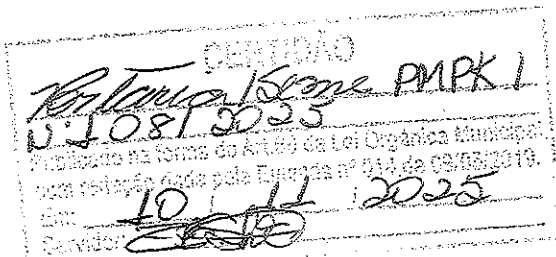 CERTIDÃO
Portaria/Seme PMPK/
Nº 108/2025
Publicado na forma do Art.69 da Lei Orgânica Municipal,
com redação dada pela Emenda nº 014 de 09/08/2019.
Em: 10 / 11 / 2025
Servidor: